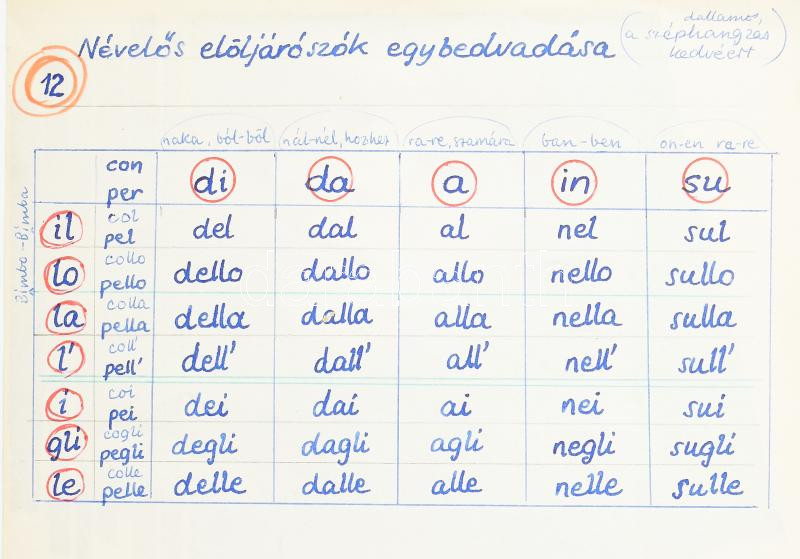 Névelős elöljárószók egybedvadása
(dallamos,
a széphangzás
kedvéért)
12
naka, ból-ből nál-nél, hozhez ra-re, számára ban-ben on-en ra-re
con
per di da a in su
Bimbo-Bimba
il col pel del dal al nel sul
lo collo pello dello dallo allo nello sullo
la colla pella della dalla alla nella sulla
l' coll' pell' dell' dall' all' nell' sull'
i coi pei dei dai ai nei sui
gli cogli pegli degli dagli agli negli sugli
le colle pelle delle dalle alle nelle sulle